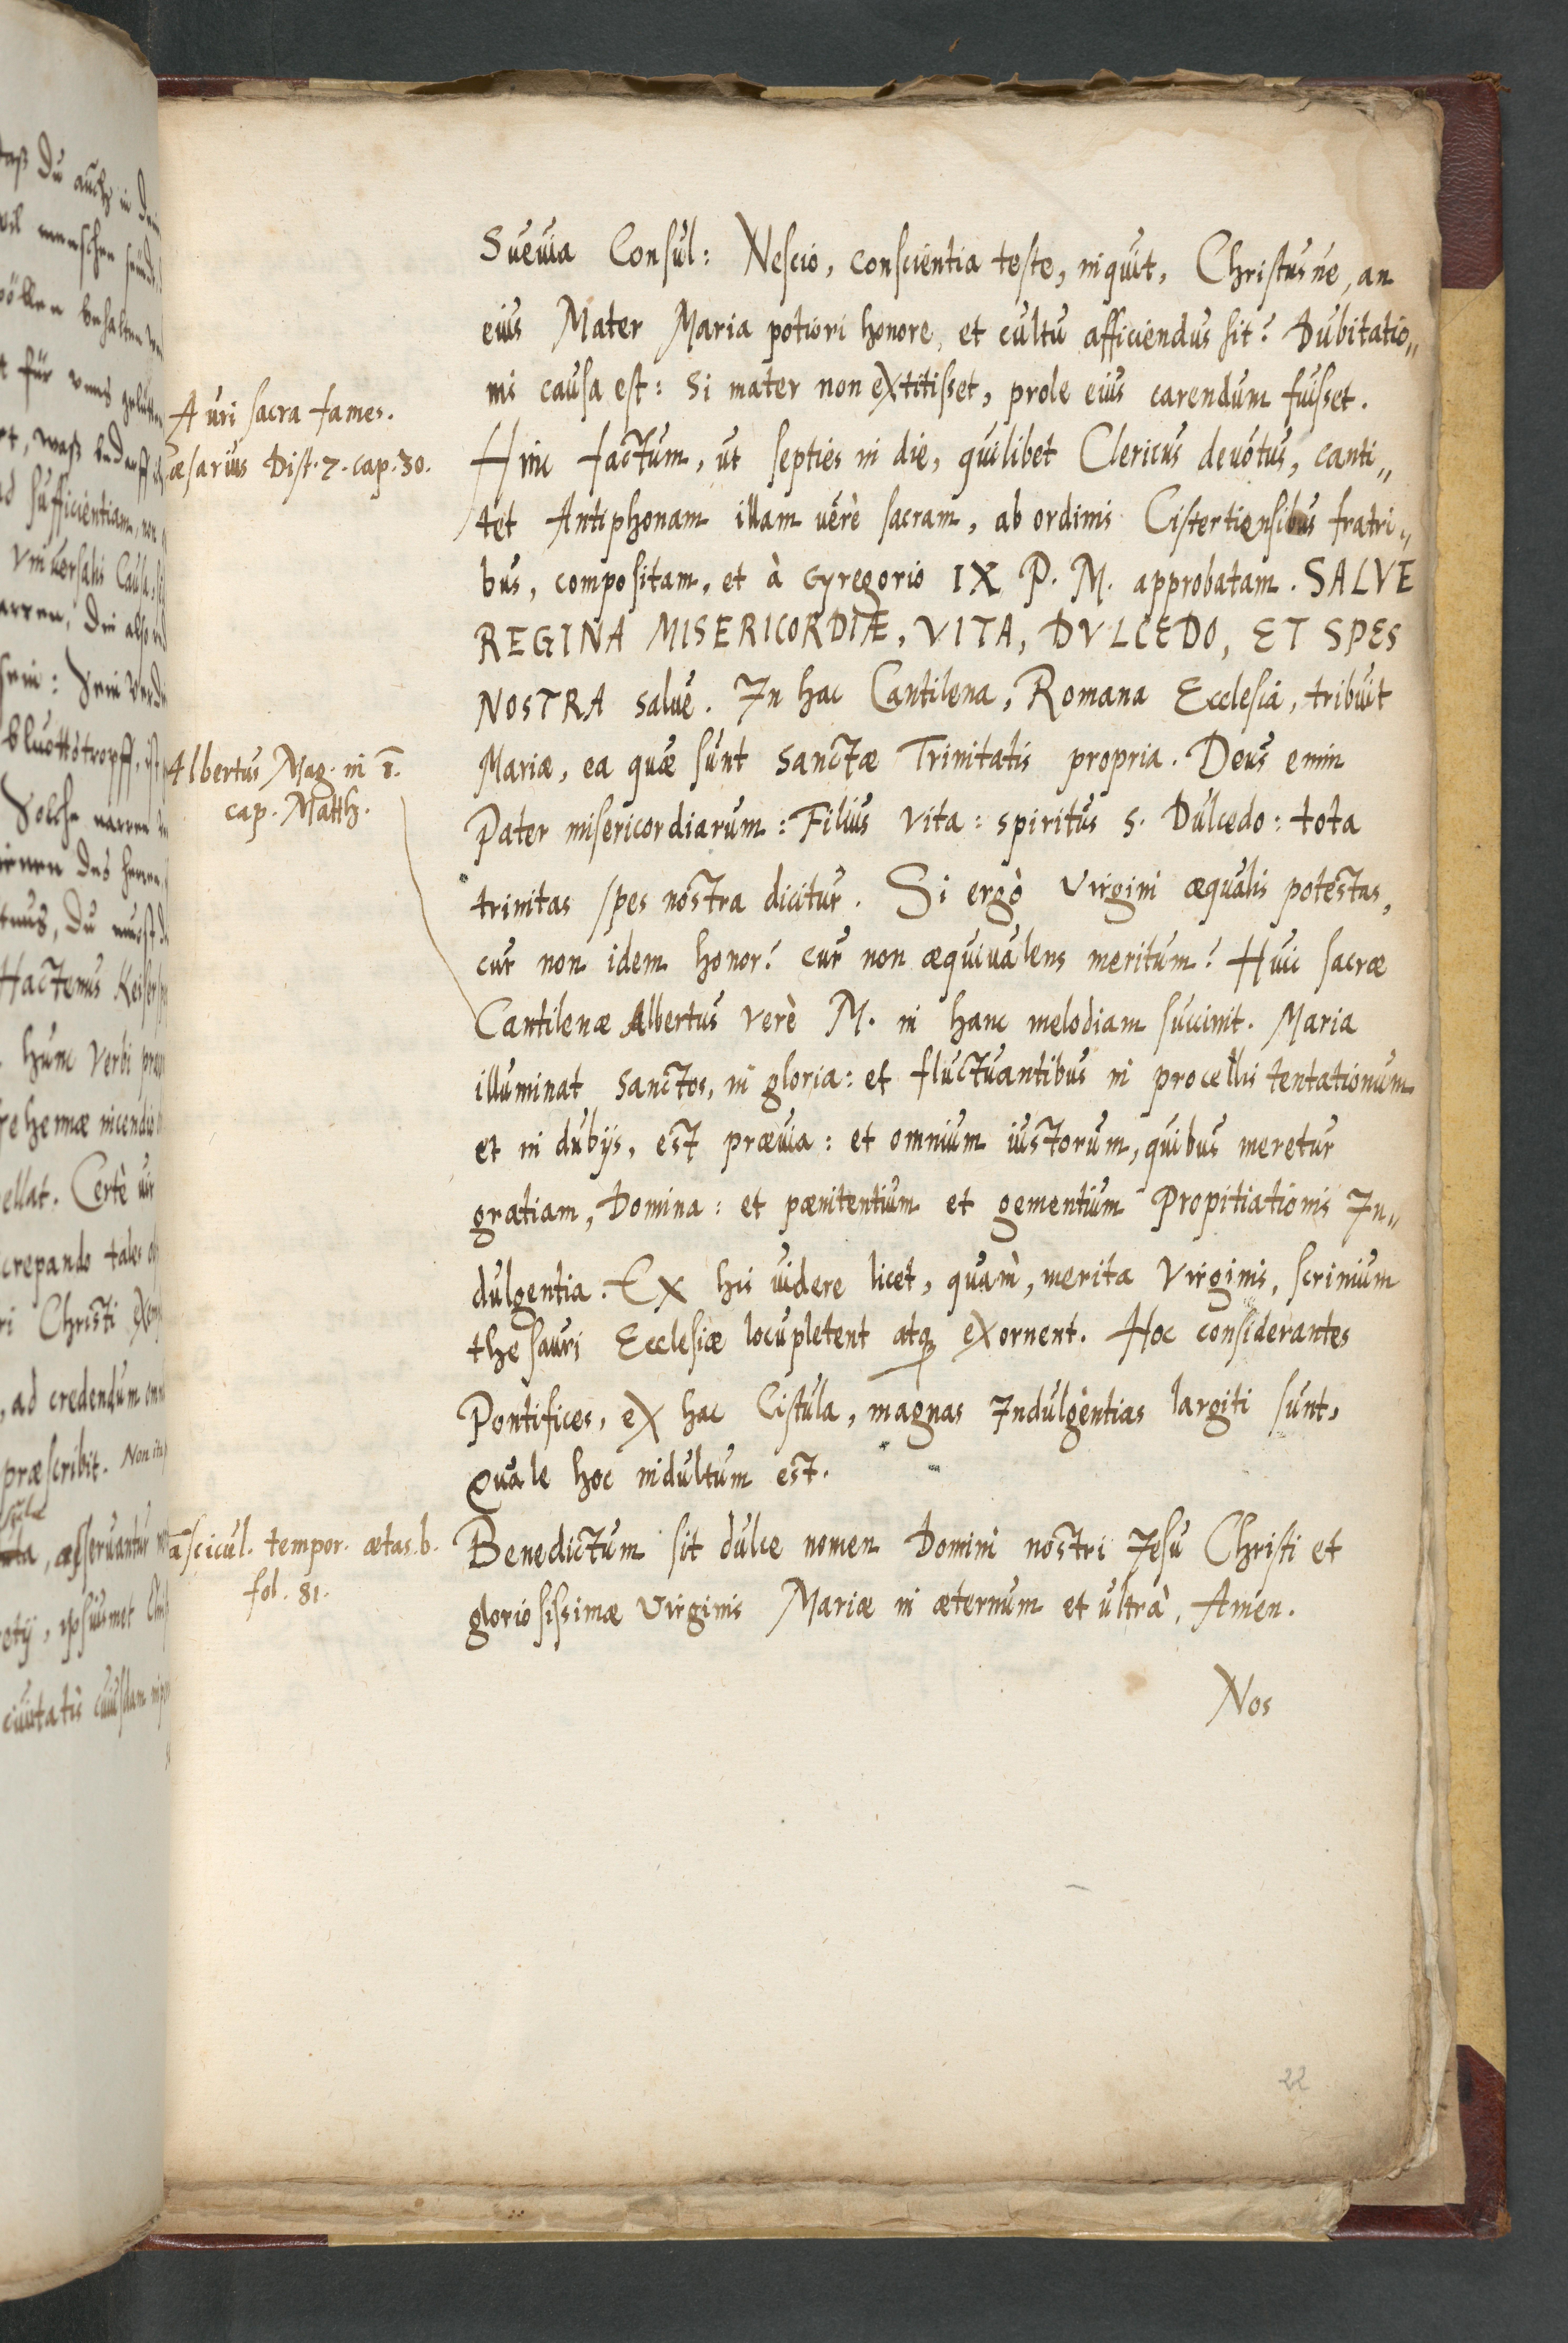 Sueuia Consul: Nescio, conscientia teste, inquit, Christus ne, an
eius Mater Maria potiori honore, et cultu afficiendus sit? Dubitatio„
nis causa est: Si mater non extitisset, prole eius carendum fuisset.
Auri sacra fames.
Hinc factum, ut septies in die, quilibet Clericus deuotus, canti„
æsarius Dist. 7. cap. 30.
tet Antiphonam illam uerè sacram, ab ordinis Cistertiensibus fratri„
bus, compositam, et à Gregorio IX P. M. approbatam. SALVE
REGINA MISERICORDIÆ, VITA, DVLCEDO, ET SPES
NOSTRA salue. In hac Cantilena, Romana Ecclesia, tribuit
Mariæ, ea quæ sunt sanctæ Trinitatis propria. Deus enim
Albertus Mag. in 1.
cap. Matth.
Pater misericordiarum: Filius vita: spiritus S. Dulcedo: tota
trinitas spes nostra dicitur. Si ergò Virgini æqualis potestas,
cur non idem honor? cur non æquiualens meritum? Huic sacræ
Cantilenæ Albertus verè M. in hanc melodiam succinit. Maria
illuminat sanctos, in gloria: et fluctuantibus in procellis tentationum
et in dubijs, est præuia: et omnium iustorum, quibus meretur
gratiam, Domina: et pænitentium et gementium Propitiationis In„
dulgentia. Ex his uidere licet, quàm, merita Virginis, scrinium
thesauri Ecclesiæ locupletent atq exornent. Hoc considerantes
Pontifices, ex hac Cistula, magnas Indulgentias largiti sunt,
Quale hoc indultum est.
ascicul. tempor. ætas. b.
fol. 81.
Benedictum sit dulce nomen Domini nostri Jesu Christi et
gloriosissimæ Virginis Mariæ in æternum et ultrà, Amen.
Nos
22